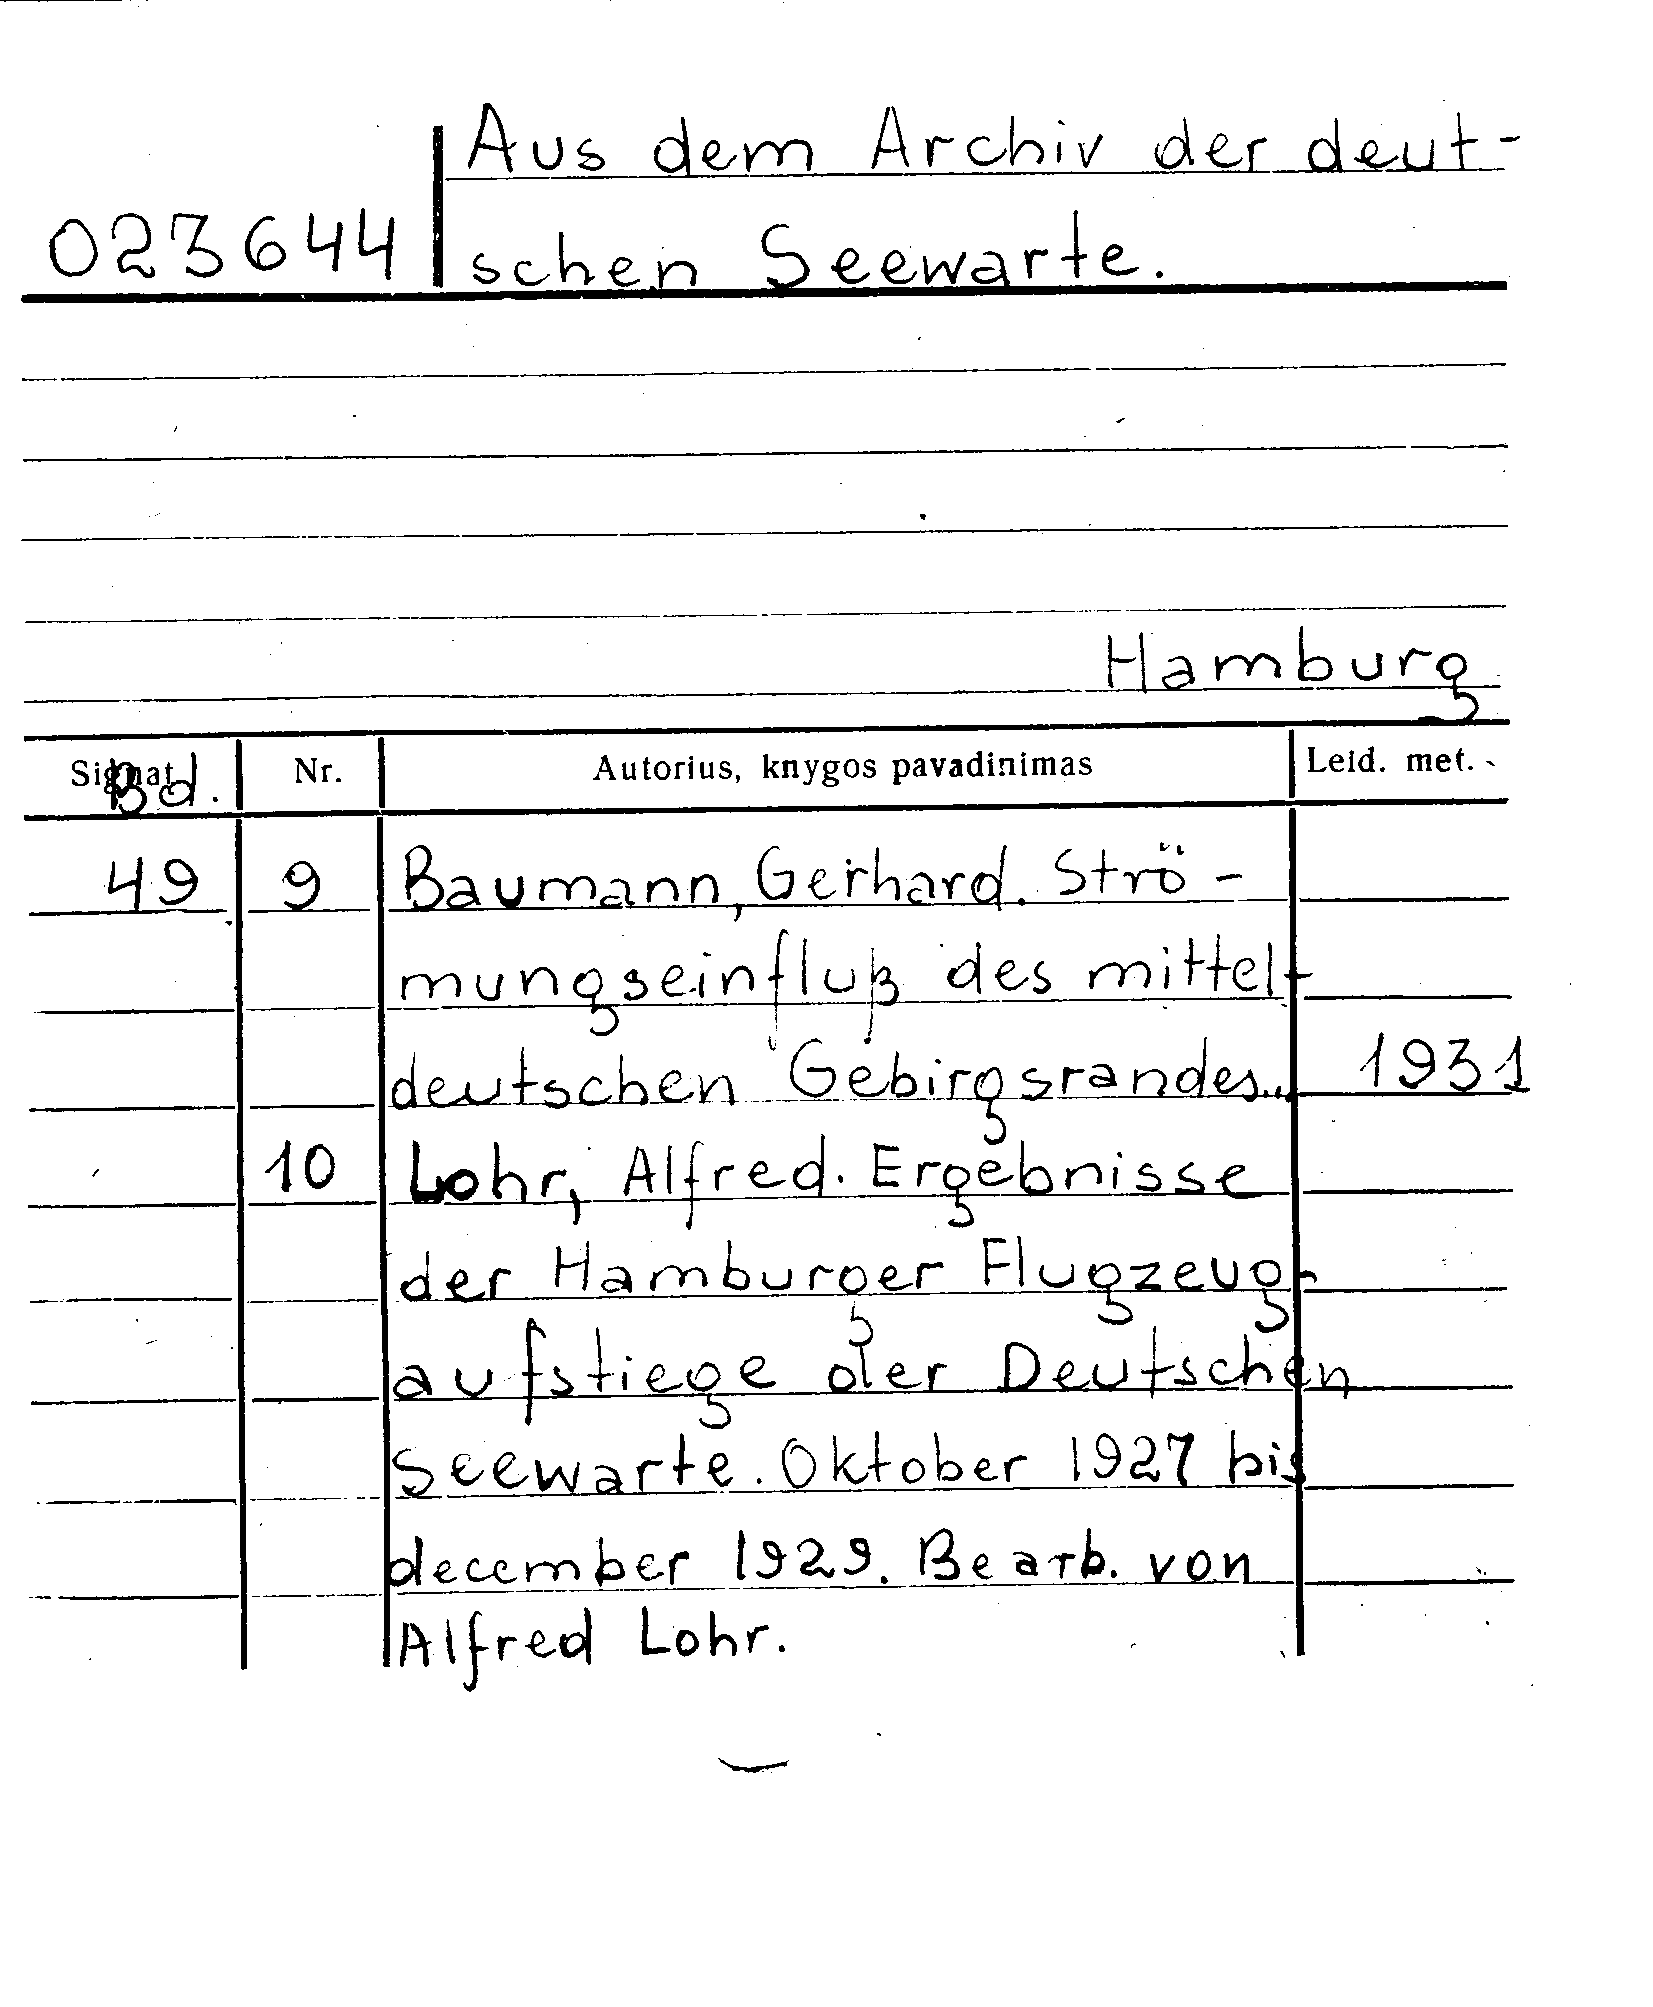 Aus dem Archiv der deut-
023644 schen Seewarte.
Hamburg
Signat. Bd. Nr. Autorius, knygos pavadinimas Leid. met.
49 9 Baumann, Gerhard. Strö-
mungseinfluß des mittel-
deutschen Gebirgsrandes... 1931
10 Lohr, Alfred. Ergebnisse
der Hamburger Flugzeug-
aufstiege der Deutschen
Seewarte. Oktober 1927 bis
december 1929. Bearb. von
Alfred Lohr.